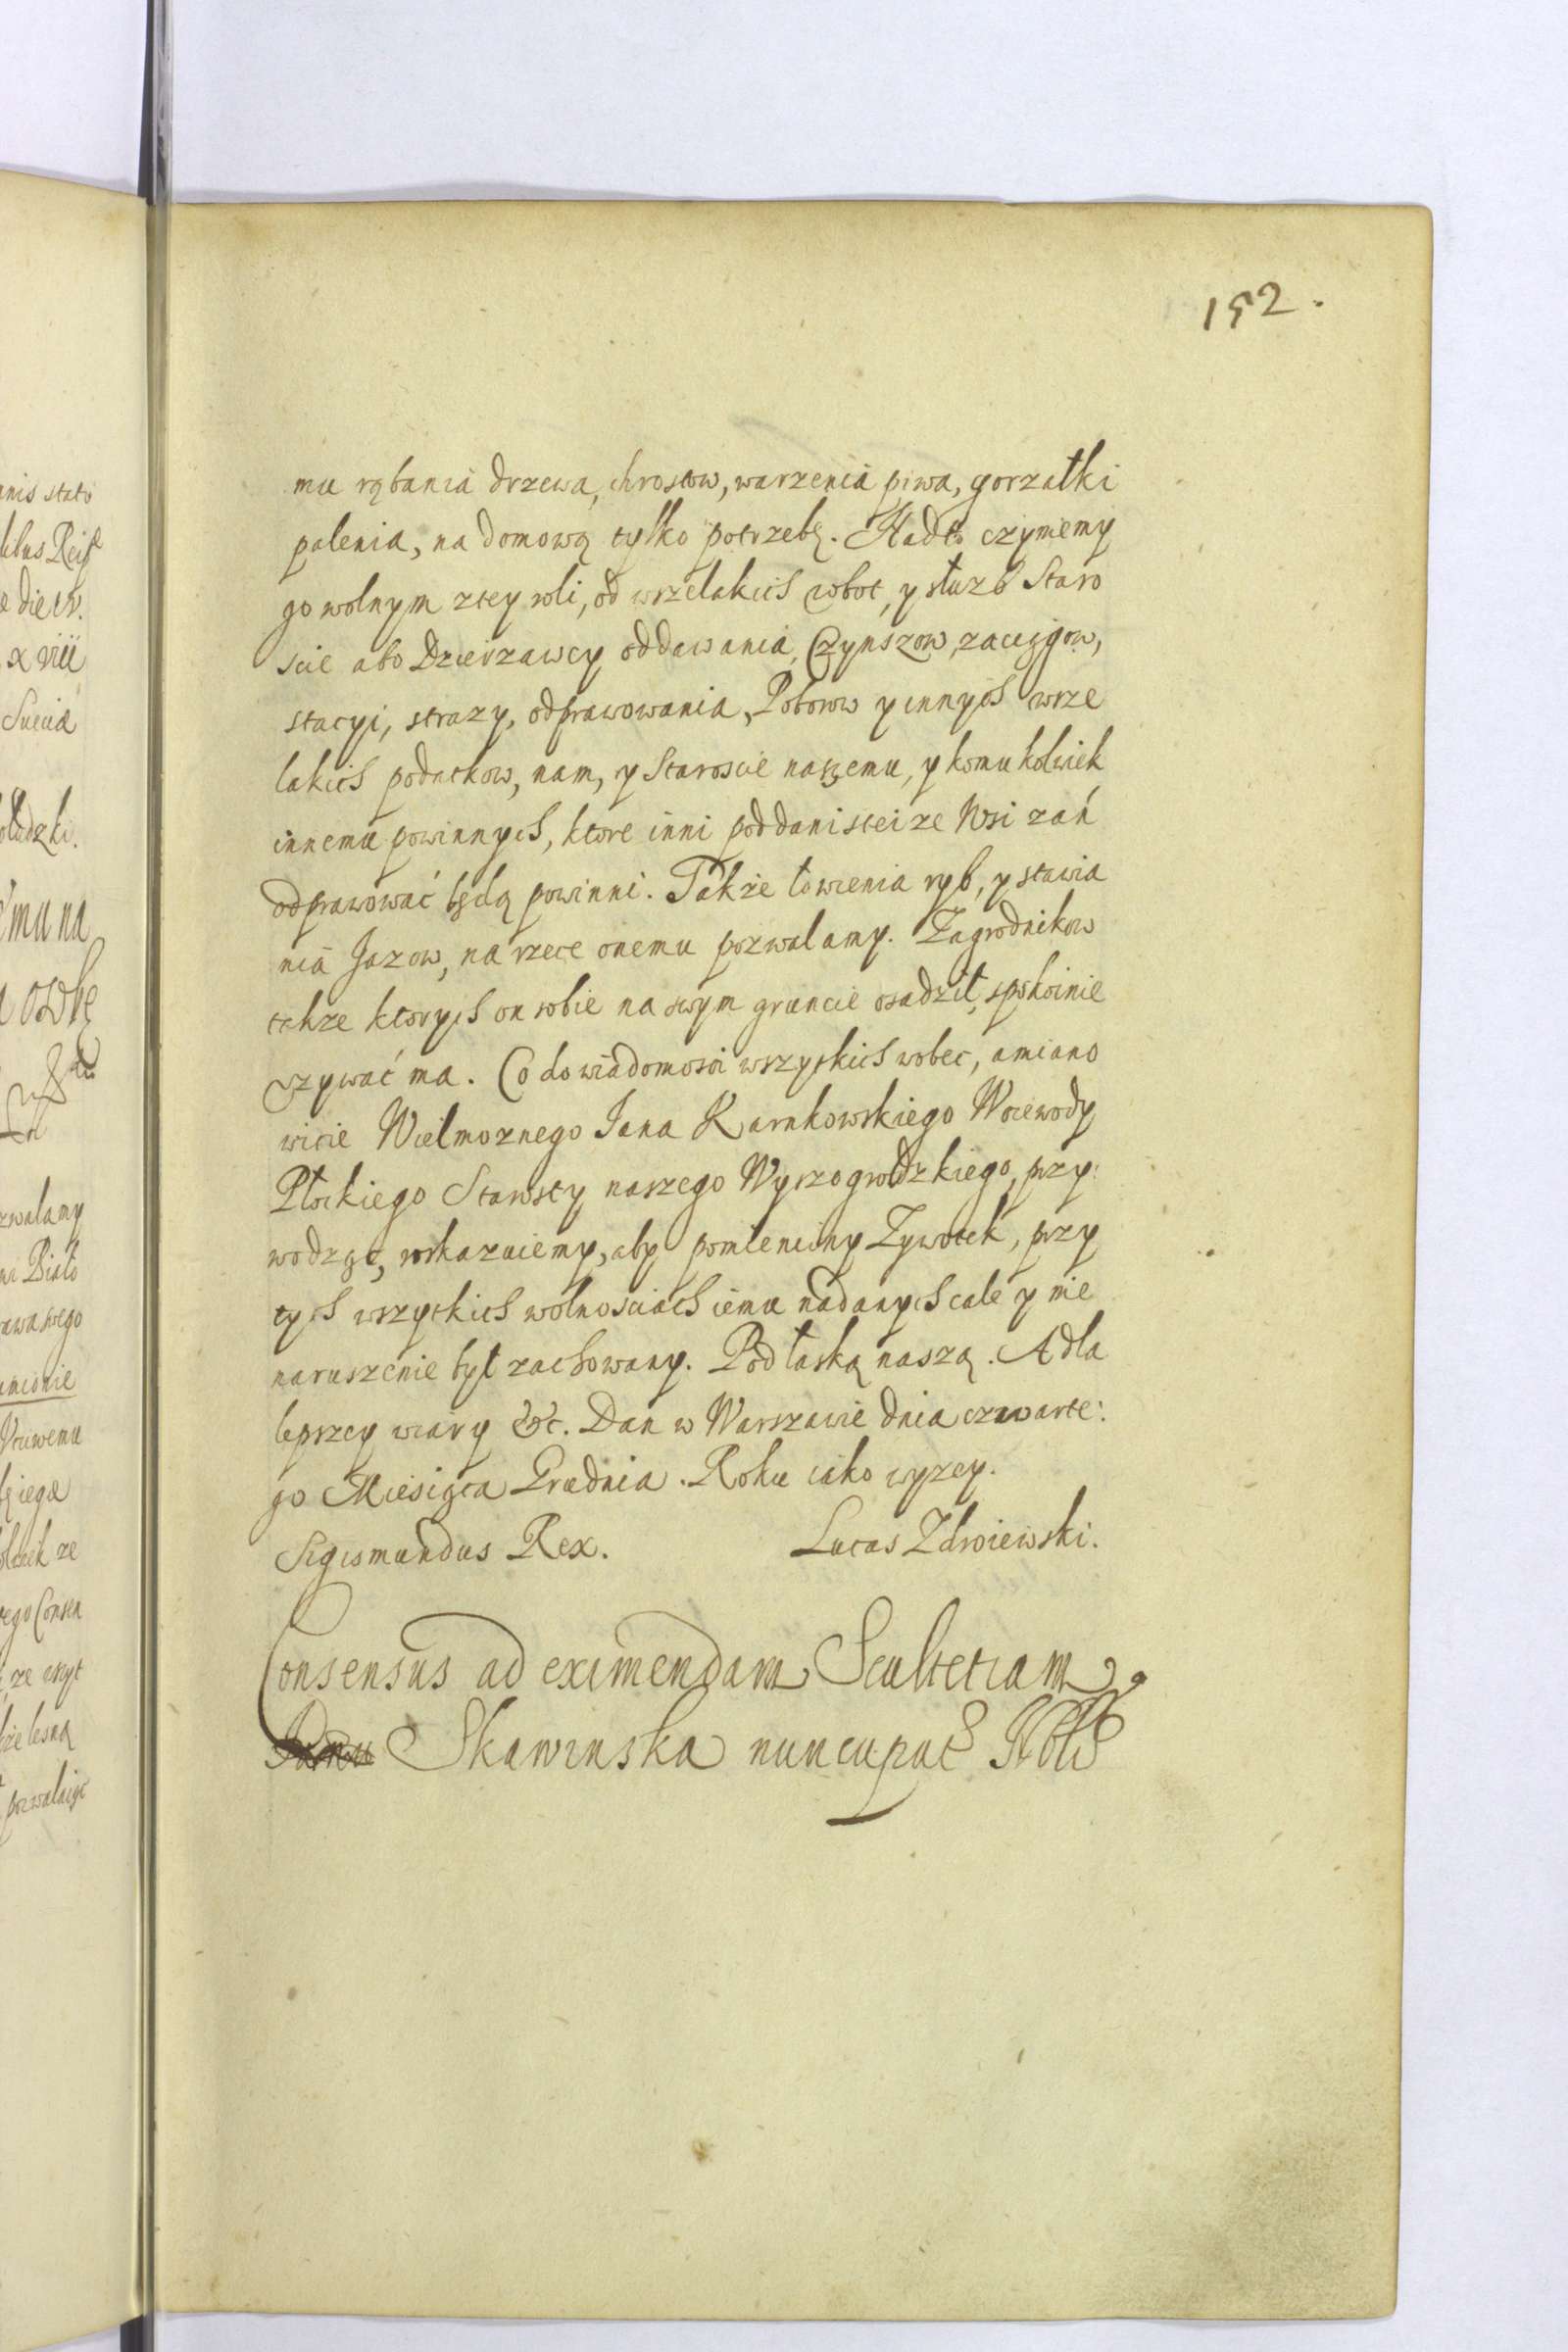 152.
mu rąbania drzewa, chrostow, warzenia piwa, gorzałki
palenia, na domową tylko potrzebę. Nadto czyniemy
go wolnym ztey roli, od wszelakich robot, y służb Staro
scie abo Dzierzawcy oddawania, Czynszow, zaciągow,
stacyi, strazy, odprawowania, Poborow y innych wsze
lakich podatkow, nam, y Staroscie naszemu, y komukolwiek
innemu powinnych, ktore inni poddani steize Wsi zań
odprawować będą powinni. Także łowienia ryb, y stawia
nia Jazow, na rzece onemu pozwalamy. Zagrodnikow
takze ktorych on sobie na swym gruncie osadził, spokoinie
vzywać ma. Co do wiadomosci wszystkich wobec, a miano
wicie Wielmoznego Jana Karnkowskiego Woiewody
Płockiego Starosty naszego Wyszogrodzkiego, przy:
wodząc, roskazuiemy, aby pomieniony Zywotek, przy
tych wszystkich wolnosciach iemu nadanych cale y nie
naruszenie był zachowany. Pod łaską naszą. A dla
lepszey wiary &c. Dan w Warszawie dnia czwarte:
go Miesiąca Grudnia. Roku iako wyzey.
Sigismundus Rex. Lucas Zdroiewski.
Consensus ad eximendam Scultetiam
Skawinska nuncupat Nobli
anis stato
x viii
Suecia
zwalamy
pozwalaiąc